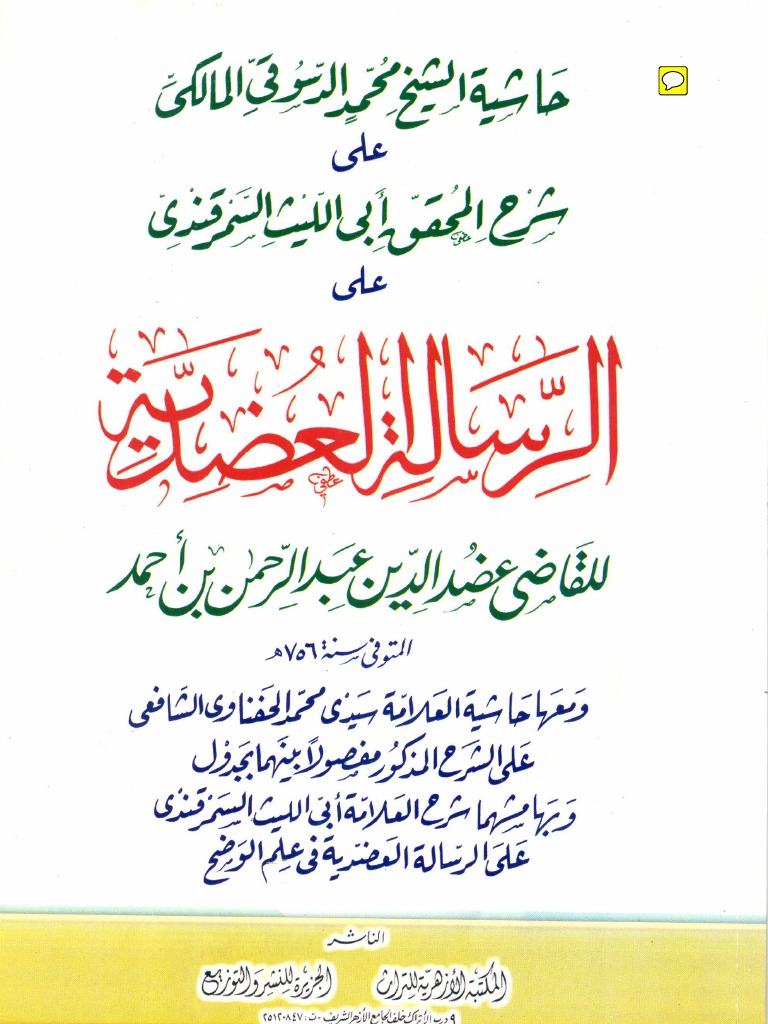 حاشية الشيخ محمد الدسوقي المالكي
على
شرح المحقق أبى الليث السمرقندى
على
الرسالة العضدية
للقاضى عضد الدين عبد الرحمن بن أحمد
المتوفى سنة ٧٥٦ھ
ومعها حاشية العلامة سيدى محمد الحفناوى الشافعى
على الشرح المذكور مفصولاً بينهما بجدول
وبهامشهما شرح العلامة أبى الليث السمرقندى
على الرسالة العضدية فى علم الوضع
الناشر
المكتبة الأزهرية للتراث الجزيرة للنشر والتوزيع
٩ درب الأتراك خلف الجامع الأزهر الشريف - ت : ٢٥١٢٠٨٤٧